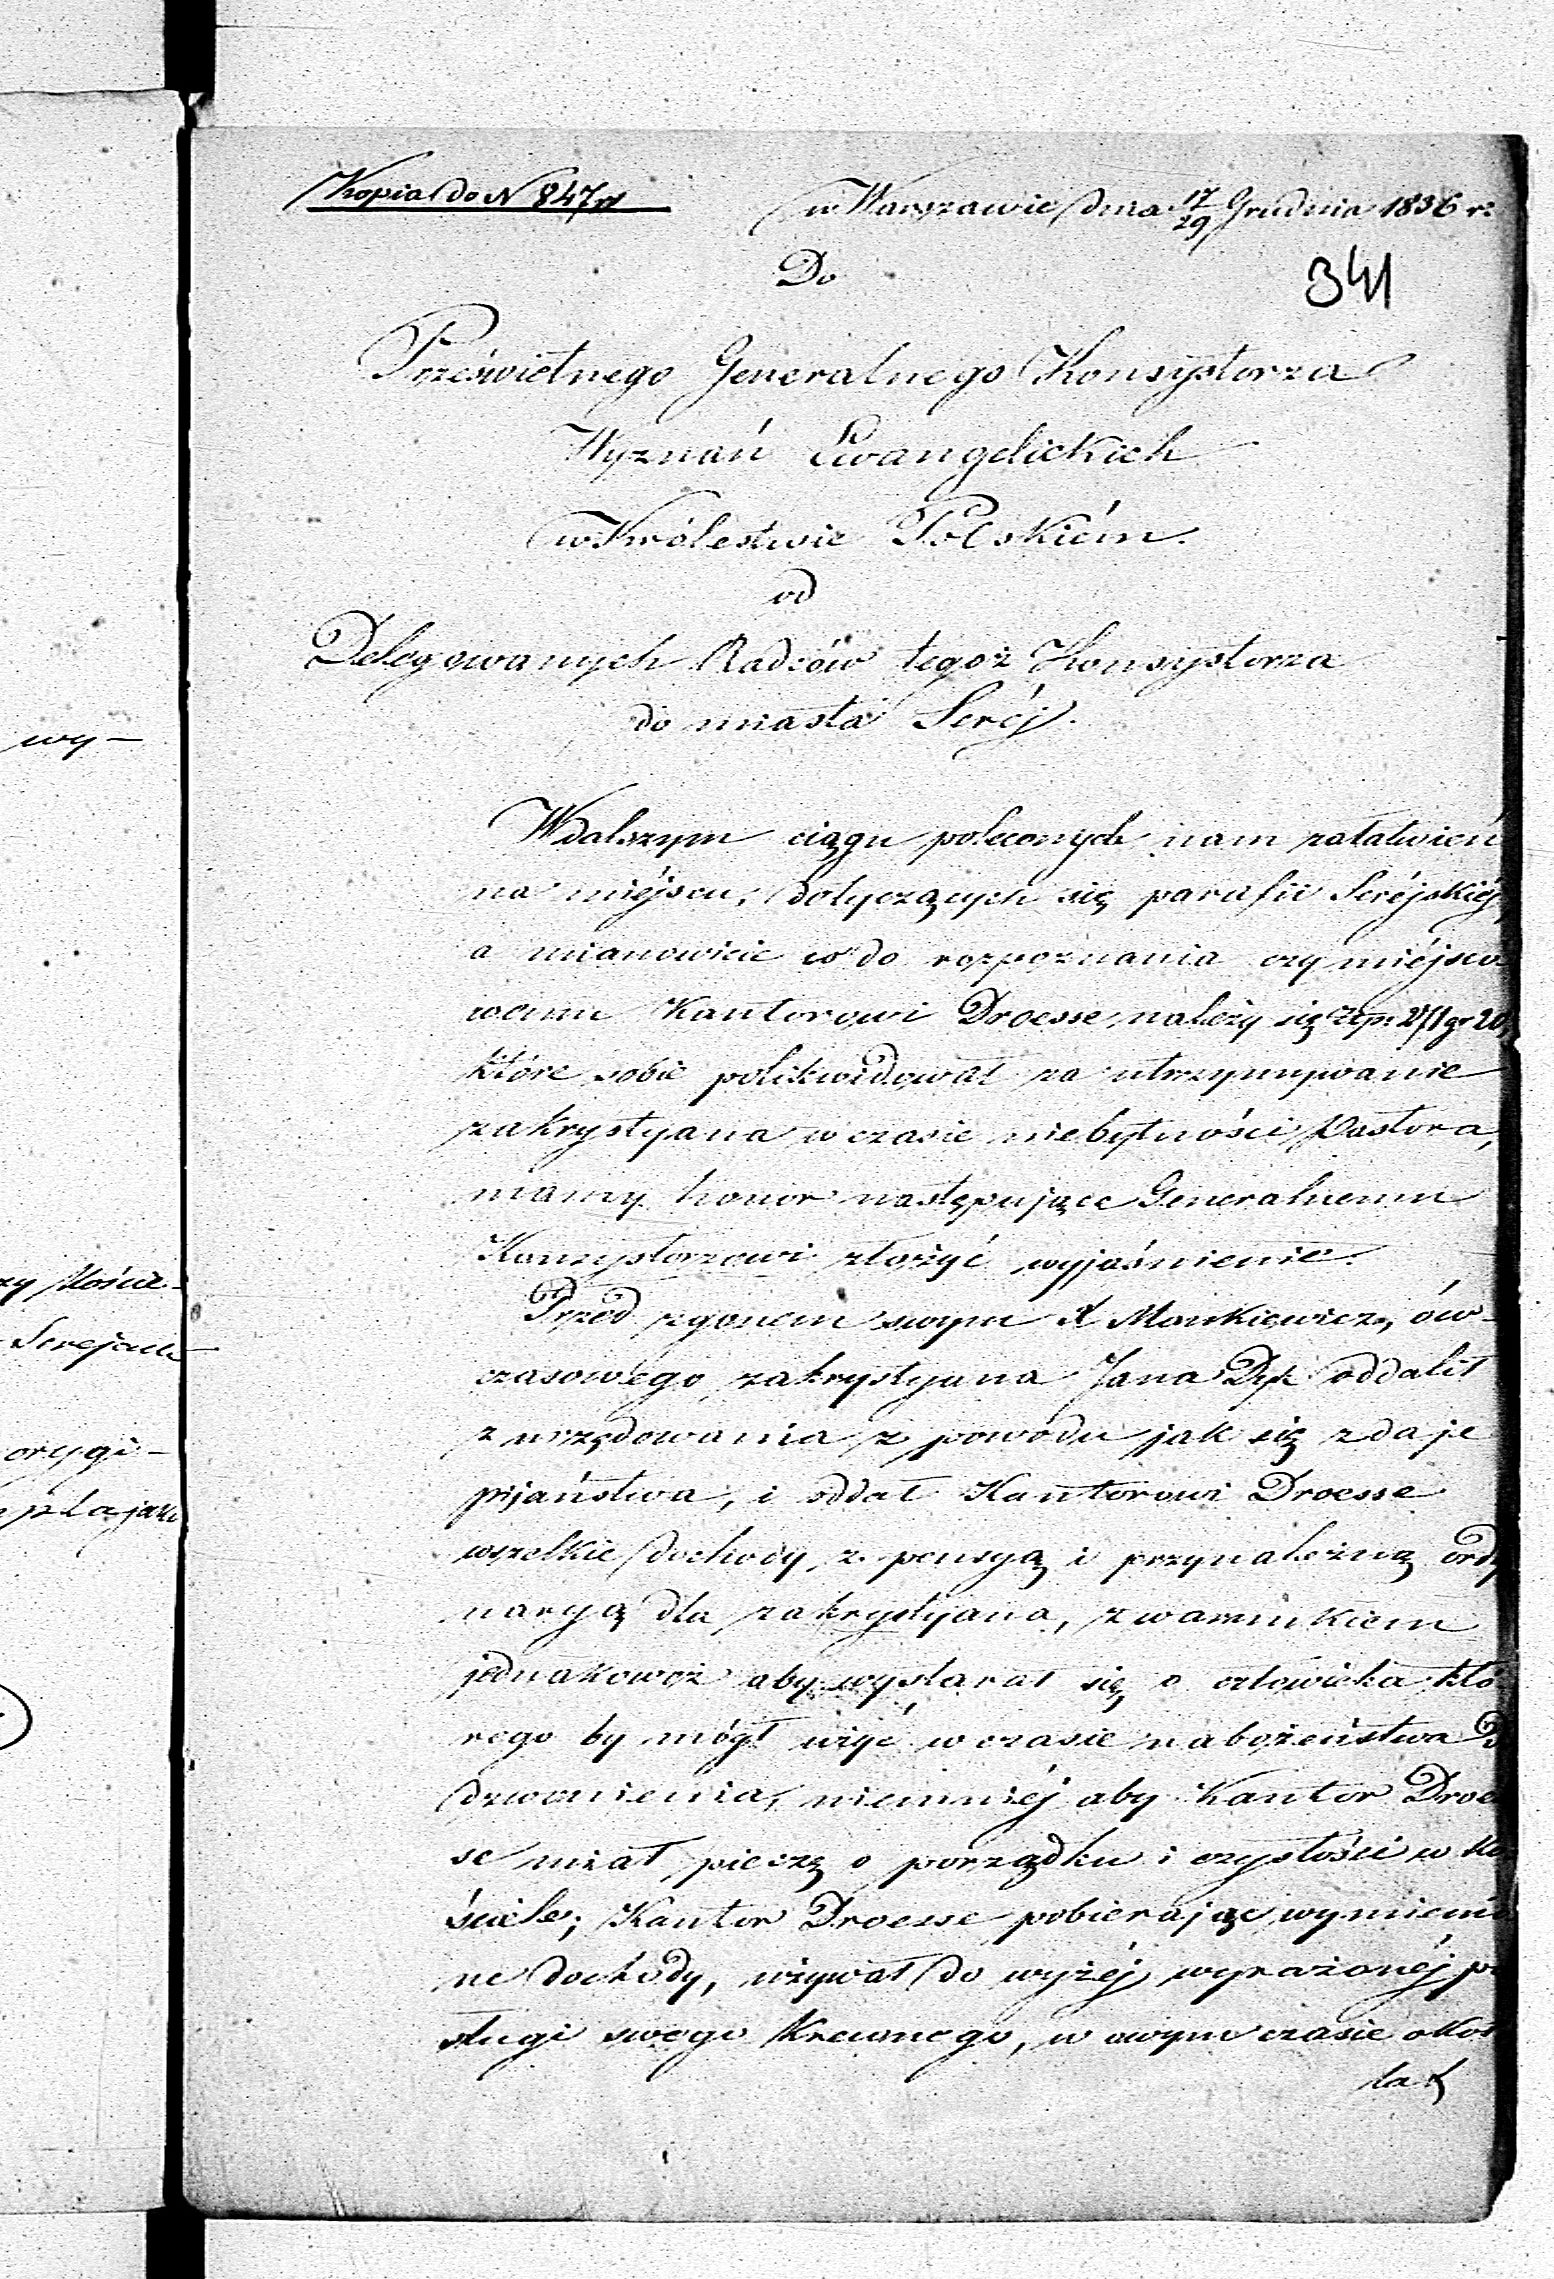 Kopia do N 847
w Warszawie dnia 17/29 Grudnia 1836 r:
341
Do
Prześwietnego Generalnego Konsystorza
Wyznań Ewangelickich
w Królestwie Polskiém.
od
Delegowanych Radców tegoż Konsystorza
do miasta Seréj.
W dalszym ciągu poleconych nam załatwień
na miéjscu, dotyczących się parafii Seréjskiéj
a mianowicie co do rozpoznania czy miéjsco
wemu Kantorowi Droesse należy się złp:
które sobie polikwidował za utrzymywanie
zakrystyana w czasie niebytności Pastora,
mamy honor następujące Generalnemu
Konsystorzowi złożyć wyjaśnienie.
Przed zgonem swym X Mankiewicz, ów-
czasowego zakrystyana Jana Dyk oddalił
z urzędowania z powodu jak się zdaje
pijaństwa, i oddał Kantorowi Droesse
wszelkie dochody, z pensyą i przynależną ordy
naryą dla zakrystyana, z warunkiem
jednakowoż aby wystarał się o człowieka któ
rego by mógł użyć w czasie nabożeństwa
dzwonienia, niemniéj aby Kantor Droe
se miał pieczę o porządku i czystości w Ko
ściele; Kantor Droesse pobierając wymienio
ne dochody, używał do wyżéj wyrażonéj po
sługi swego Krewnego, w owym czasie około
lat
wy-
Serejach
orygi-